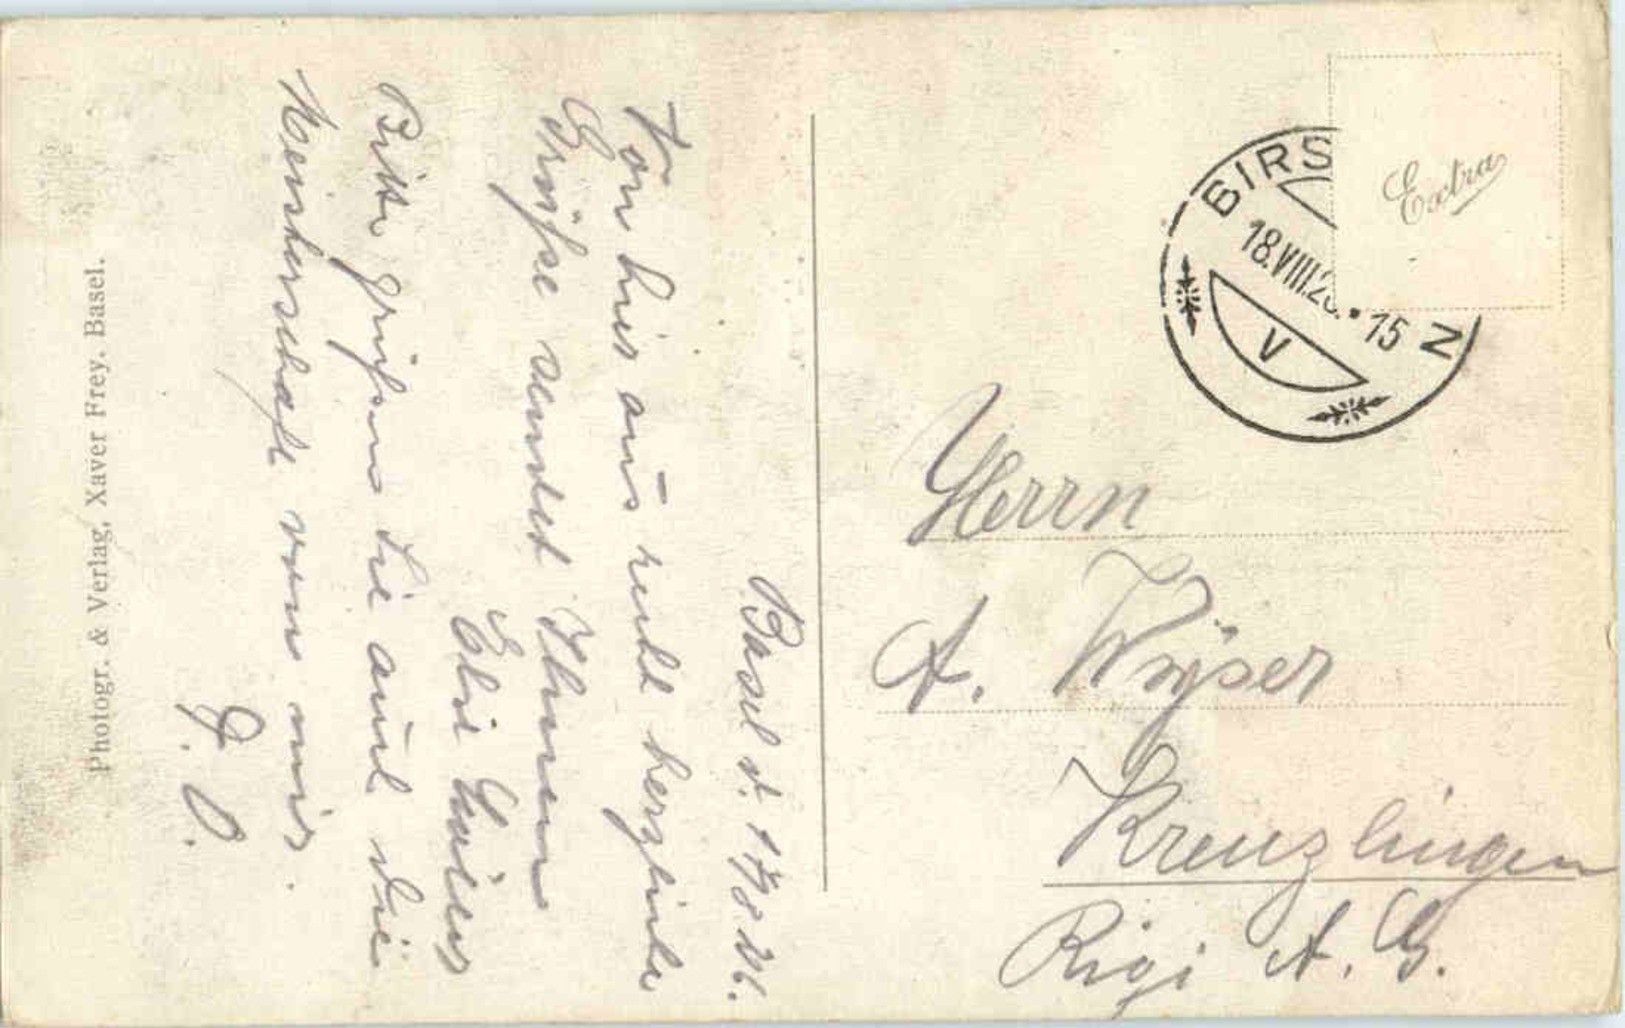 Basel d. 17/8 26.
Von hier aus recht herzliche
Grüsse sendet Ihnen
Bitte grüssen Sie auch die
Meisterschaft von mir.
Photogr. & Verlag, Xaver Frey, Basel.
Extra
BIRS
18.VIII.2 15
N
V
Herrn
A. Wyser
Kreuzlingen
Rigi A. G.